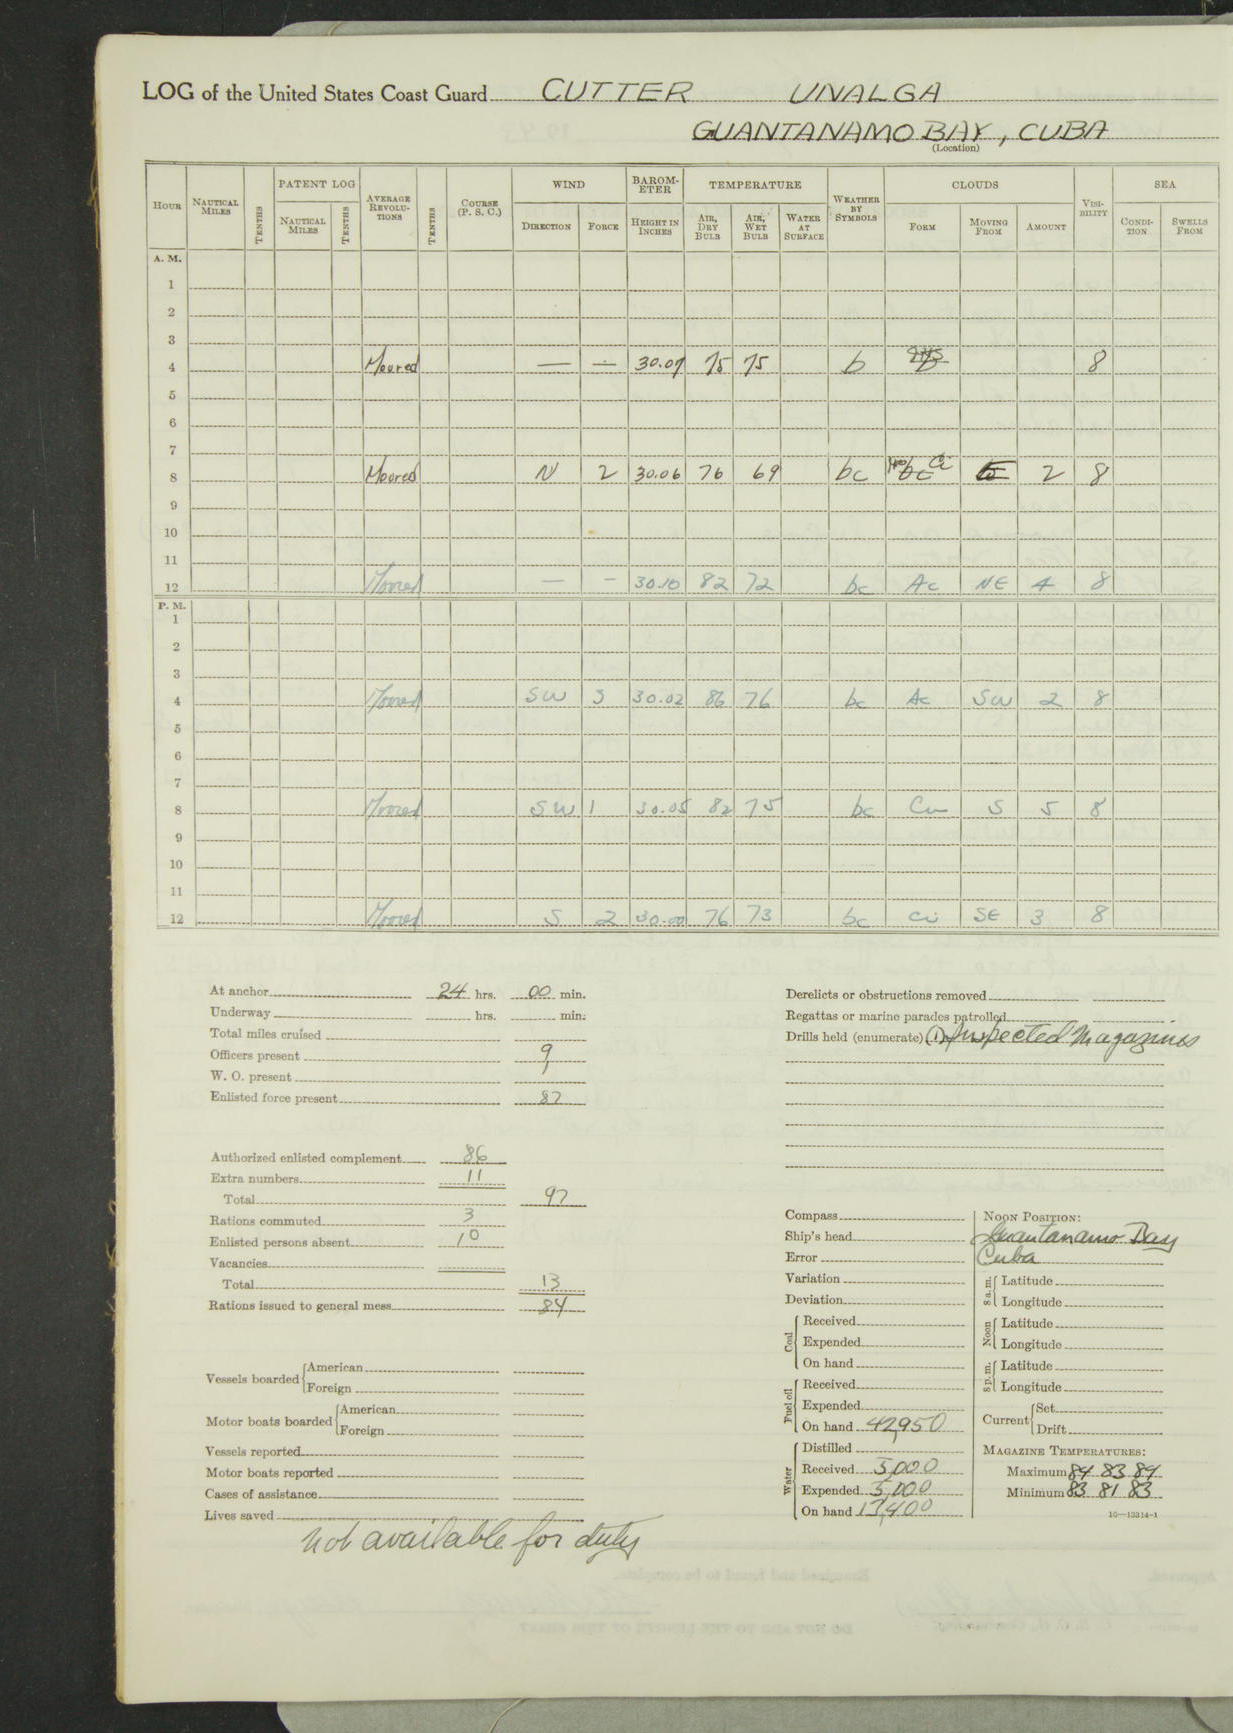 LOG of the United States Coast Guard CUTTER UNALGA
GUANTANAMO BAY, CUBA
(Location)
HOUR NAUTICAL MILES TENTHS PATENT LOG NAUTICAL MILES TENTHS AVERAGE REVOLUTIONS TENTHS COURSE (P. S. C.) WIND DIRECTION FORCE BAROMETER HEIGHT IN INCHES TEMPERATURE AIR, DRY BULB AIR, WET BULB WATER AT SURFACE WEATHER BY SYMBOLS CLOUDS FORM MOVING FROM AMOUNT VISIBILITY SEA CONDITION SWELLS FROM
A. M.
1
2
3
4 Moored — — 30.07 75 75 b 8
5
6
7
8 Moored N 2 30.06 76 69 bc Ci 2 8
9
10
11
12 Moored — — 30.10 82 72 bc Ac NE 4 8
P. M.
1
2
3
4 Moored SW 3 30.02 86 76 bc Ac SW 2 8
5
6
7
8 Moored SW 1 30.05 82 75 bc Cu S 5 8
9
10
11
12 Moored S 2 30.00 76 73 bc Ci SE 3 8
At anchor 24 hrs. 00 min.
Underway hrs. min.
Total miles cruised
Officers present 9
W. O. present 1
Enlisted force present 87
Authorized enlisted complement 86
Extra numbers 11
Total 97
Rations commuted 3
Enlisted persons absent 10
Vacancies
Total 13
Rations issued to general mess 84
Vessels boarded American
Foreign
Motor boats boarded American
Foreign
Vessels reported
Motor boats reported
Cases of assistance
Lives saved
Not available for duty
Derelicts or obstructions removed
Regattas or marine parades patrolled
Drills held (enumerate) (1) Inspected Magazines
Compass
Ship's head
Error
Variation
Deviation
Coal Received
Expended
On hand
Fuel oil Received
Expended
On hand 42,950
Water Distilled
Received 5,000
Expended 5,000
On hand 17,400
NOON POSITION:
Guantanamo Bay
Cuba
8 a. m. Latitude
Longitude
Noon Latitude
Longitude
8 p. m. Latitude
Longitude
Current Set
Drift
MAGAZINE TEMPERATURES:
Maximum 84 83 84
Minimum 83 81 83
16—13314-1